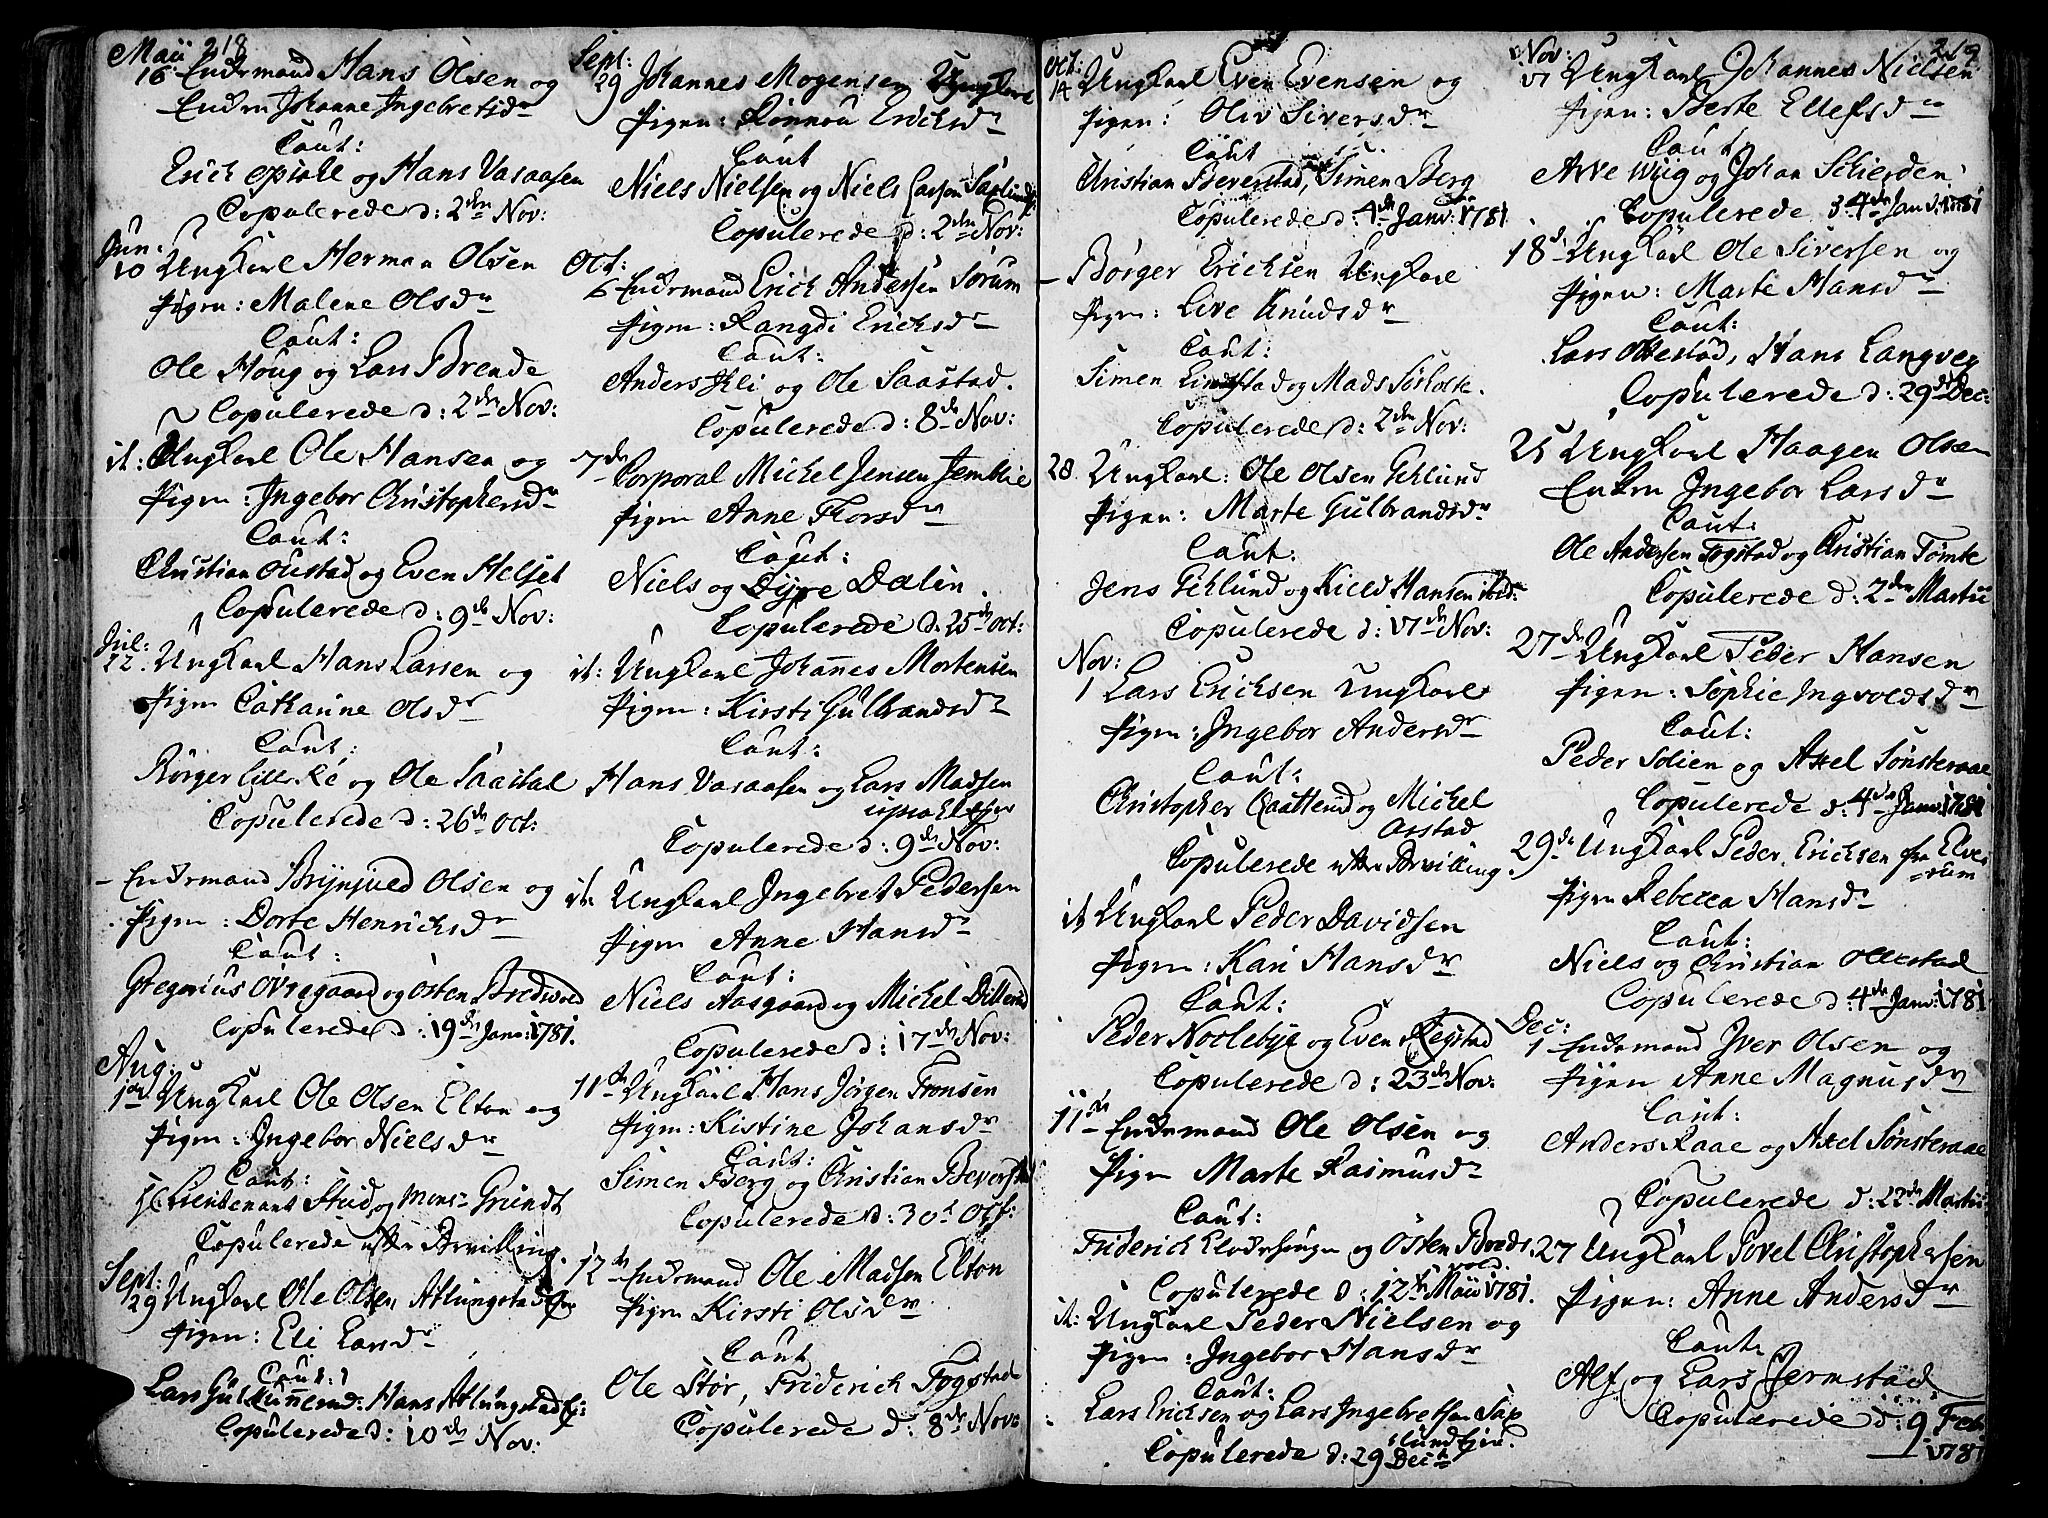 218
Maii
16 Enkemand Hans Olsen og
Enken Johanne Ingebretsdr
Caut:
Erich opsahl og Hans Vasaasen
Copulerede d: 2den Nov:
Jun:
10 Ungkarl Herman Olsen
Pigen: Malene Olsdr
Caut:
Ole Houg og Lars Brende
Copulerede d: 2den Nov:
it: Ungkarl Ole Hansen og
Pigen: Ingebor Christophersdr
Caut:
Christian Oustad og Even Helset
Copulerede d: 9de Nov:
Jul:
22. Ungkarl Hans Larsen og
Pigen Catharine Olsdr
Caut:
Børger Lille Ré og Ole Saastad
Copulerede d: 26de Oct:
- Enkemand Brynjued Olsen og
Pigen: Dorte Henrichsdr
Caut:
Gregorius Øvregaard og Østen Bredvold
Copulerede d: 19de Janv: 1781.
Aug:
1ste Ungkarl Ole Olsen Elton og
Pigen: Ingebor Nielsdr
Caut:
Hr Lieutenant Stud og Mons: Grundt
Copulerede efter Bevilling.
Sept:
29 Ungkarl Ole Olsen Atlungstad
Pigen: Eli Larsdr
Caut:
Lars Hans Atlungstad
Copulerede d: 10de Nov:
Sept:
29 Johannes Mogensen Ungkarl
Pigen: Rønnou Erichsdr
Caut
Niels Nielsen og Niels Larsen
Copulerede d: 2den Nov:
Oct:
6 Enkemand Erich Andersen Sørum
Pigen: Rangdi Erichsdr
Caut:
Anders Kli og Ole Saastad.
Copulerede d: 8de Nov:
7de Corporal Michel Jensen Jemblie
Pigen Anne Thorsdr
Caut:
Niels og Dyre Dalin.
Copulerede d: 25de Oct:
it: Ungkarl Johannes Mortensen
Pigen: Kirsti Gulbrandsdr
Caut:
Hans Vasaasen og Lars Madsen
opsahlejer
Copulerede d: 9de Nov:
it: Ungkarl Ingebret Pedersen
Pigen Anne Hansdr
Caut:
Niels Aasgaard og Michel Dillerud
Copulerede d: 17de Nov:
11te Ungkarl Hans Jørgen Tronsen
Pigen: Kistine Johansdr
Caut:
Simen Berg og Christian Beverstad
Copulerede d: 30te Oct:
12te Enkemand Ole Madsen Elton
Pigen Kirsti Olsdr
Caut
Ole Stor, Friderich Togstad
Copulerede d: 8de Nov:
219
Oct:
14 Ungkarl Even Evensen og
Pigen: Oliv Siversdr
Caut
Christian Beverstad, Simen Berg
Copulerede d: 4de Janv: 1781
- Børger Erichsen Ungkarl
Pigen: Live Knudsdr
Caut:
Simen Lindstad og Mads Sørholte.
Copulerede d: 2den Nov:
28 Ungkarl: Ole Olsen Eklund
Pigen: Marte Gulbrandsdr
Caut:
Jens Eklund og Kield Hansen ibid:
Copulerede d: 17de Nov:
Nov:
1 Lars Erichsen Ungkarl
Pigen: Ingebor Andersdr
Caut:
Christopher Qvatterud og Michel
Orstad
Copulerede efter Bevilling.
it Ungkarl Peder Davidsen
Pigen: Kari Hansdr
Caut:
Peder Norlebye og Even Regstad
Copulerede d: 23de Nov:
11te Enkemand Ole Olsen og
Pigen Marte Rasmusdr
Caut:
Friderich og Østen Breds
vold.
Copulerede d: 12te Maii 1781.
it: Ungkarl Peder Nielsen og
Pigen: Ingebor Hansdr
Caut:
Lars Erichsen og Lars Ingebretsen Sax
lundejer.
Copulerede d: 29 Decbr
Nov:
17 Ungkarl Johannes Nielsen
Pigen: Berte Ellefsdr
Caut
Arve Wiig og Johan Schierden
Copulerede d 4de Janv: 1781
18de Ungkarl Ole Siversen og
Pigen: Marte Hansdr
Caut:
Lars Ottestad, Hans Langveg
Copulerede d: 29de Dec:
25 Ungkarl Haagen Olsen
Enken Ingebor Larsdr
Caut:
Ole Andersen Togstad og Christian Tomte
Copulerede d: 2den Martii
27de Ungkarl Peder Hansen
Pigen: Sophie Ingvoldsdr
Caut:
Peder Solien og Axel Sønsteraae
Copulerede d: 4de Janv: 1781
29de Ungkarl Peder Erichsen fra Elve
rum
Pigen Rebecca Hansdr
Caut:
Niels og Christian Ottestad
Copulerede d: 4de Janv: 1781
Dec:
1 Enkemand Iver Olsen og
Pigen Anne Magnusdr
Caut:
Anders Raae og Axel Sønsteraae
Copulerede d: 22de Martii
27 Ungkarl Povel Christophersen
Pigen: Anne Andersdr
Caut:
Alf og Lars Jermstad
Copulerede d: 9 Feb:
1781